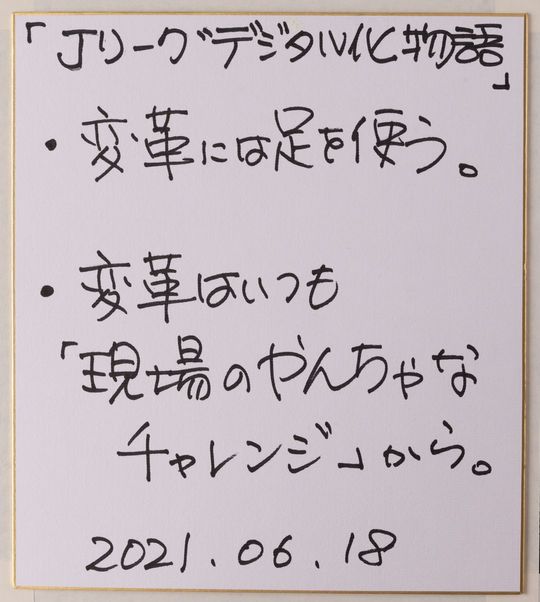 「Jリーグデジタル化物語」
・変革には足を使う。
・変革はいつも
「現場のやんちゃな
チャレンジ」から。
2021.06.18